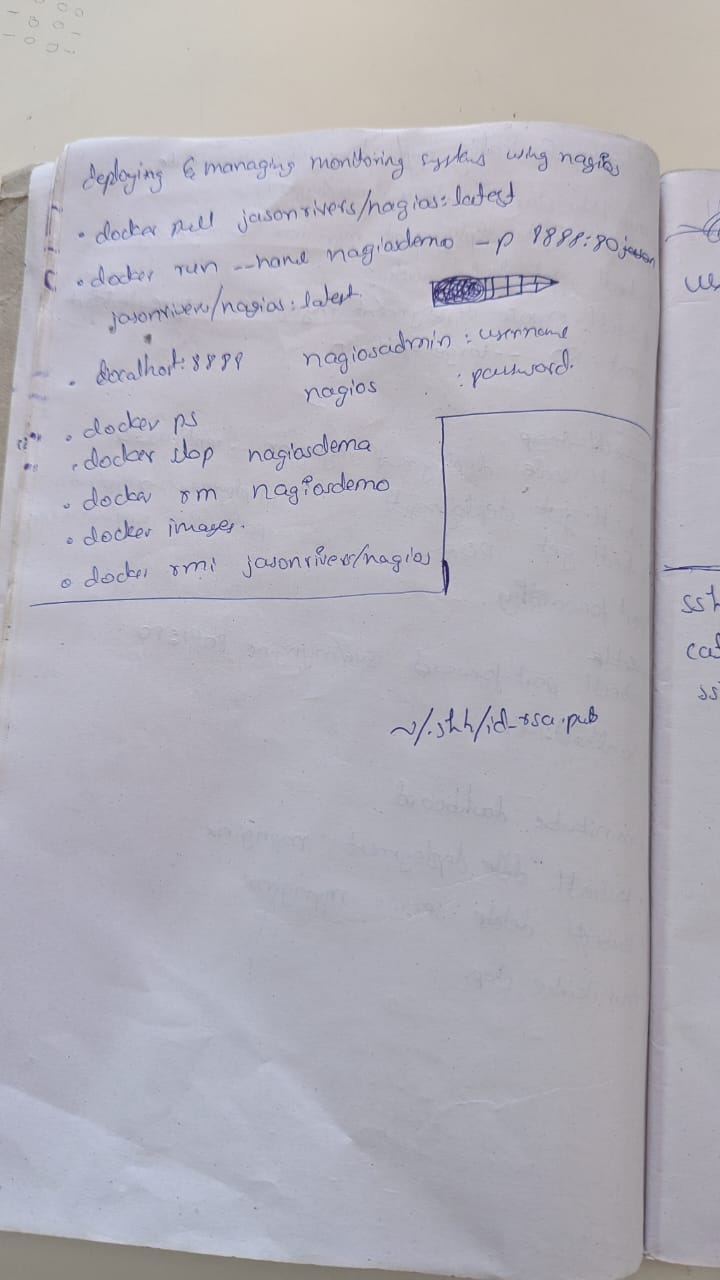 deploying & managing monitoring systems using nagios
• docker pull jasonrivers/nagios:latest
• docker run --name nagiosdemo -p 8888:80
jasonrivers/nagios:latest
• localhost:8888 nagiosadmin : username
nagios : password.
• docker ps
• docker stop nagiosdema
• docker rm nagiosdemo
• docker images.
• docker rmi jasonrivers/nagios
~/.shh/id_rsa.pub
ssh